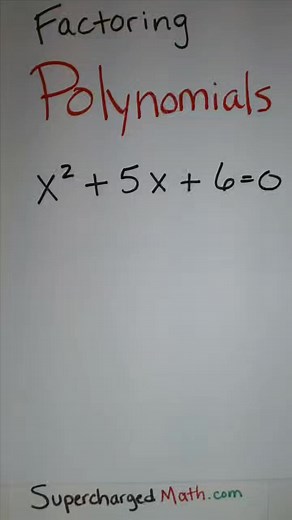 Factoring
Polynomials
x² + 5x + 6=0
SuperchargedMath.com